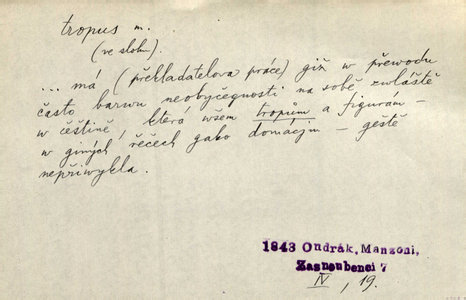 tropus m.
(ve slohu).
... má (překladatelova práce) giž w přewodu
často barwu neobyčegnosti na sobě zwláště
w češtině, která wšem tropům a figurám –
w giných řečech gako domácým – geště
nepřiwykla.
1843 Ondrák, Manzoni,
Zasnoubenci 7
IV, 19.